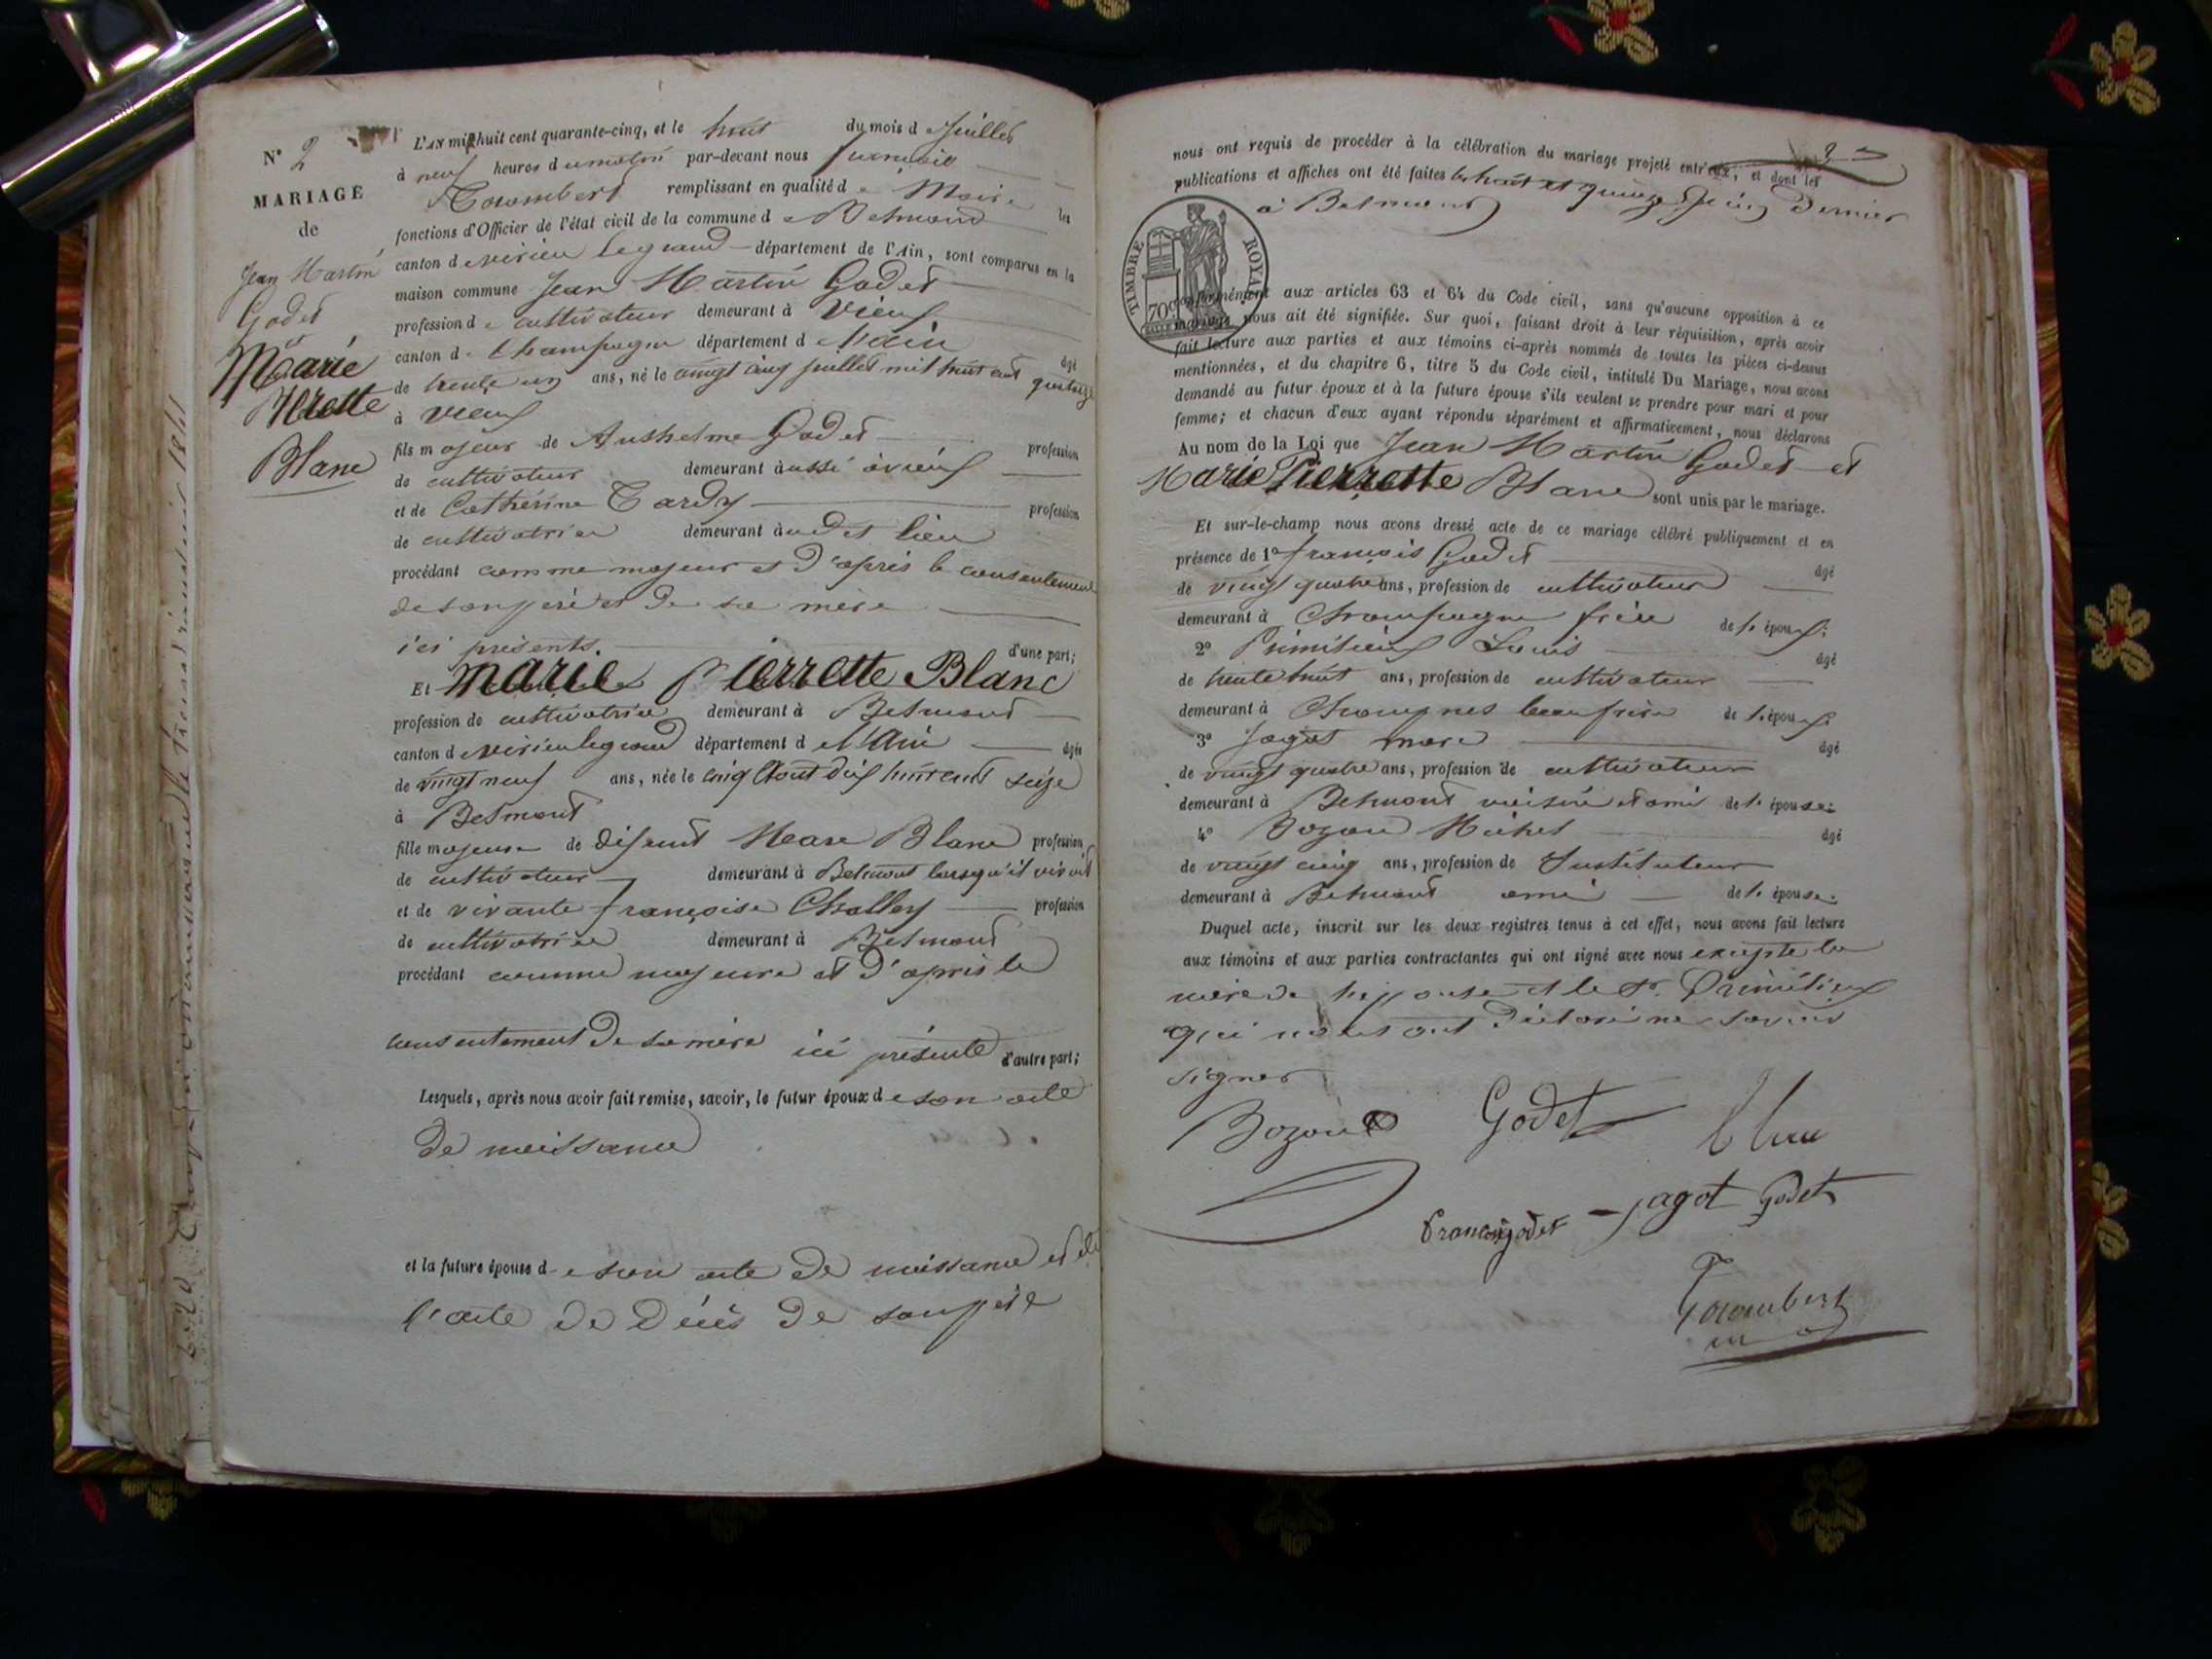 N° 2
MARIAGE
de
Jean Martin
Godet
et
Marie
Pierrette
Blanc
L'AN mil huit cent quarante-cinq, et le huit du mois de Juillet
à neuf heures du matin par-devant nous françois
Colombert remplissant en qualité de Maire les
fonctions d'Officier de l'état civil de la commune de Belmont
canton de virieu legrand département de l'Ain, sont comparus en la
maison commune Jean Martin Godet
profession de cultivateur demeurant à Vieux
canton de Champagne département de l'ain âgé
de trente un ans, né le vingt cinq juillet mil huit cent quatorze
à vieux
fils majeur de Anthelme Godet profession
de cultivateur demeurant à aussi à vieux
et de Catherine Tardy profession
de cultivatrice demeurant à udit lieu
procédant comme majeur et d'après le consentement
de son père et de sa mère
ici présents. d'une part;
Et marie Pierrette Blanc
profession de cultivatrice demeurant à Belmont
canton de virieu legrand département de l'Ain âgée
de vingt neuf ans, née le cinq Aout dix huit cent seize
à Belmont
fille majeure de défunt Marc Blanc profession
de cultivateur demeurant à Belmont lorsqu'il vivait
et de vivante françoise Challey profession
de cultivatrice demeurant à Belmont
procédant comme majeure et d'après le
consentement de sa mère ici présente d'autre part;
Lesquels, après nous avoir fait remise, savoir, le futur époux de son acte
de naissance
et la future épouse de son acte de naissance et de
l'acte de Décès de son père
nous ont requis de procéder à la célébration du mariage projeté entr'eux, et dont les
publications et affiches ont été faites le huit et quinze Juin dernier
à Belmont
TIMBRE ROYAL
70c
conformément aux articles 63 et 64 du Code civil, sans qu'aucune opposition à ce
mariage nous ait été signifiée. Sur quoi, faisant droit à leur réquisition, après avoir
fait lecture aux parties et aux témoins ci-après nommés de toutes les pièces ci-dessus
mentionnées, et du chapitre 6, titre 5 du Code civil, intitulé Du Mariage, nous avons
demandé au futur époux et à la future épouse s'ils veulent se prendre pour mari et pour
femme; et chacun d'eux ayant répondu séparément et affirmativement, nous déclarons
Au nom de la Loi que Jean Martin Godet et
Marie Pierrette Blanc sont unis par le mariage.
Et sur-le-champ nous avons dressé acte de ce mariage célébré publiquement et en
présence de 1° françois Godet âgé
de vingt quatre ans, profession de cultivateur
demeurant à Champagne frère de l'époux;
2° Primitieux Louis âgé
de trente huit ans, profession de cultivateur
demeurant à beaufrère de l'époux;
3° Jagot marc âgé
de vingt quatre ans, profession de cultivateur
demeurant à Belmont voisin et ami de l'épouse;
4° Bozon Michel âgé
de vingt cinq ans, profession de Instituteur
demeurant à Belmont ami de l'épouse;
Duquel acte, inscrit sur les deux registres tenus à cet effet, nous avons fait lecture
aux témoins et aux parties contractantes qui ont signé avec nous excepté la
mère de l'epouse et le Sr. Primitieux
qui nous ont déclaré ne savoir
signer
Bozon Godet Blanc
françois godet jagot Godet
Colombert